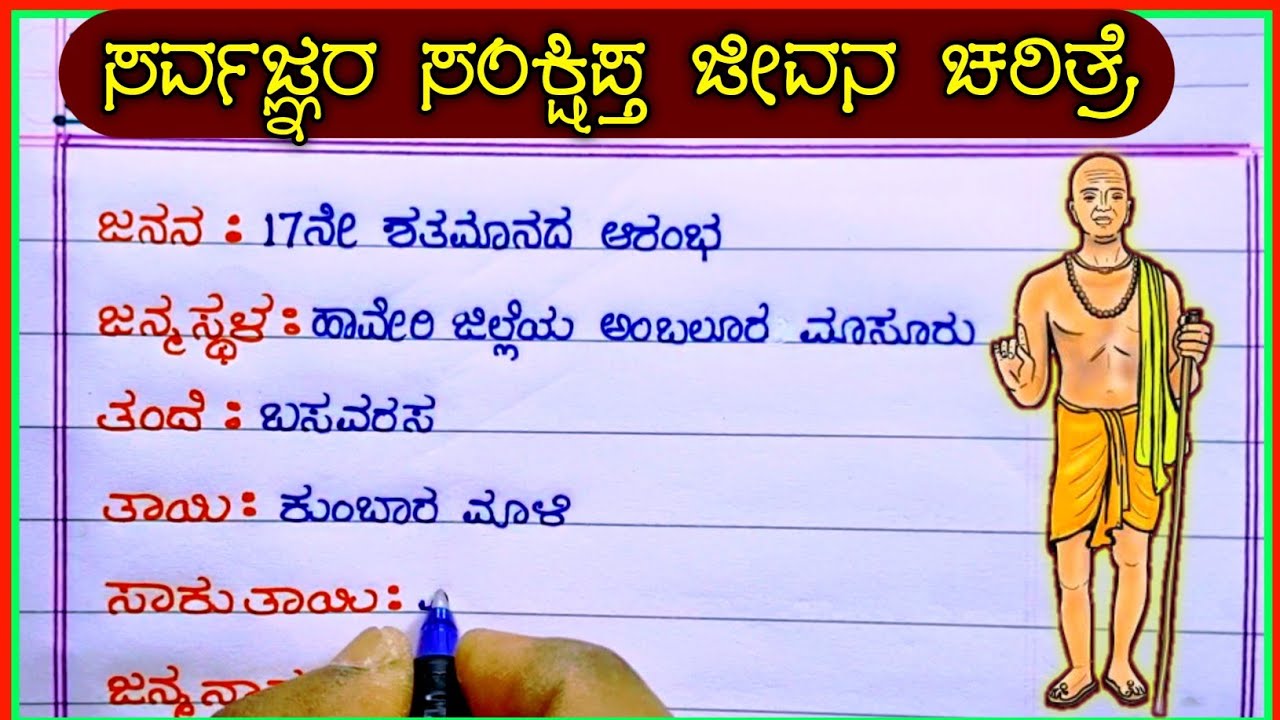 ಸರ್ವಜ್ಞರ ಸಂಕ್ಷಿಪ್ತ ಜೀವನ ಚರಿತ್ರೆ
ಜನನ : 17ನೇ ಶತಮಾನದ ಆರಂಭ
ಜನ್ಮಸ್ಥಳ : ಹಾವೇರಿ ಜಿಲ್ಲೆಯ ಅಂಬಲೂರ ಮಾಸೂರು
ತಂದೆ : ಬಸವರಸ
ತಾಯಿ : ಕುಂಬಾರ ಮಾಳಿ
ಸಾಕುತಾಯಿ :